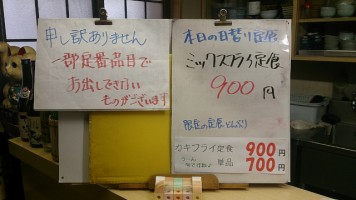 申し訳ありません
一部定番品目で
お出しできない
ものがございます
本日の日替り定食
ミックスフライ定食
900円
限定の定食どんぶり
カキフライ定食 900円
単品 700円